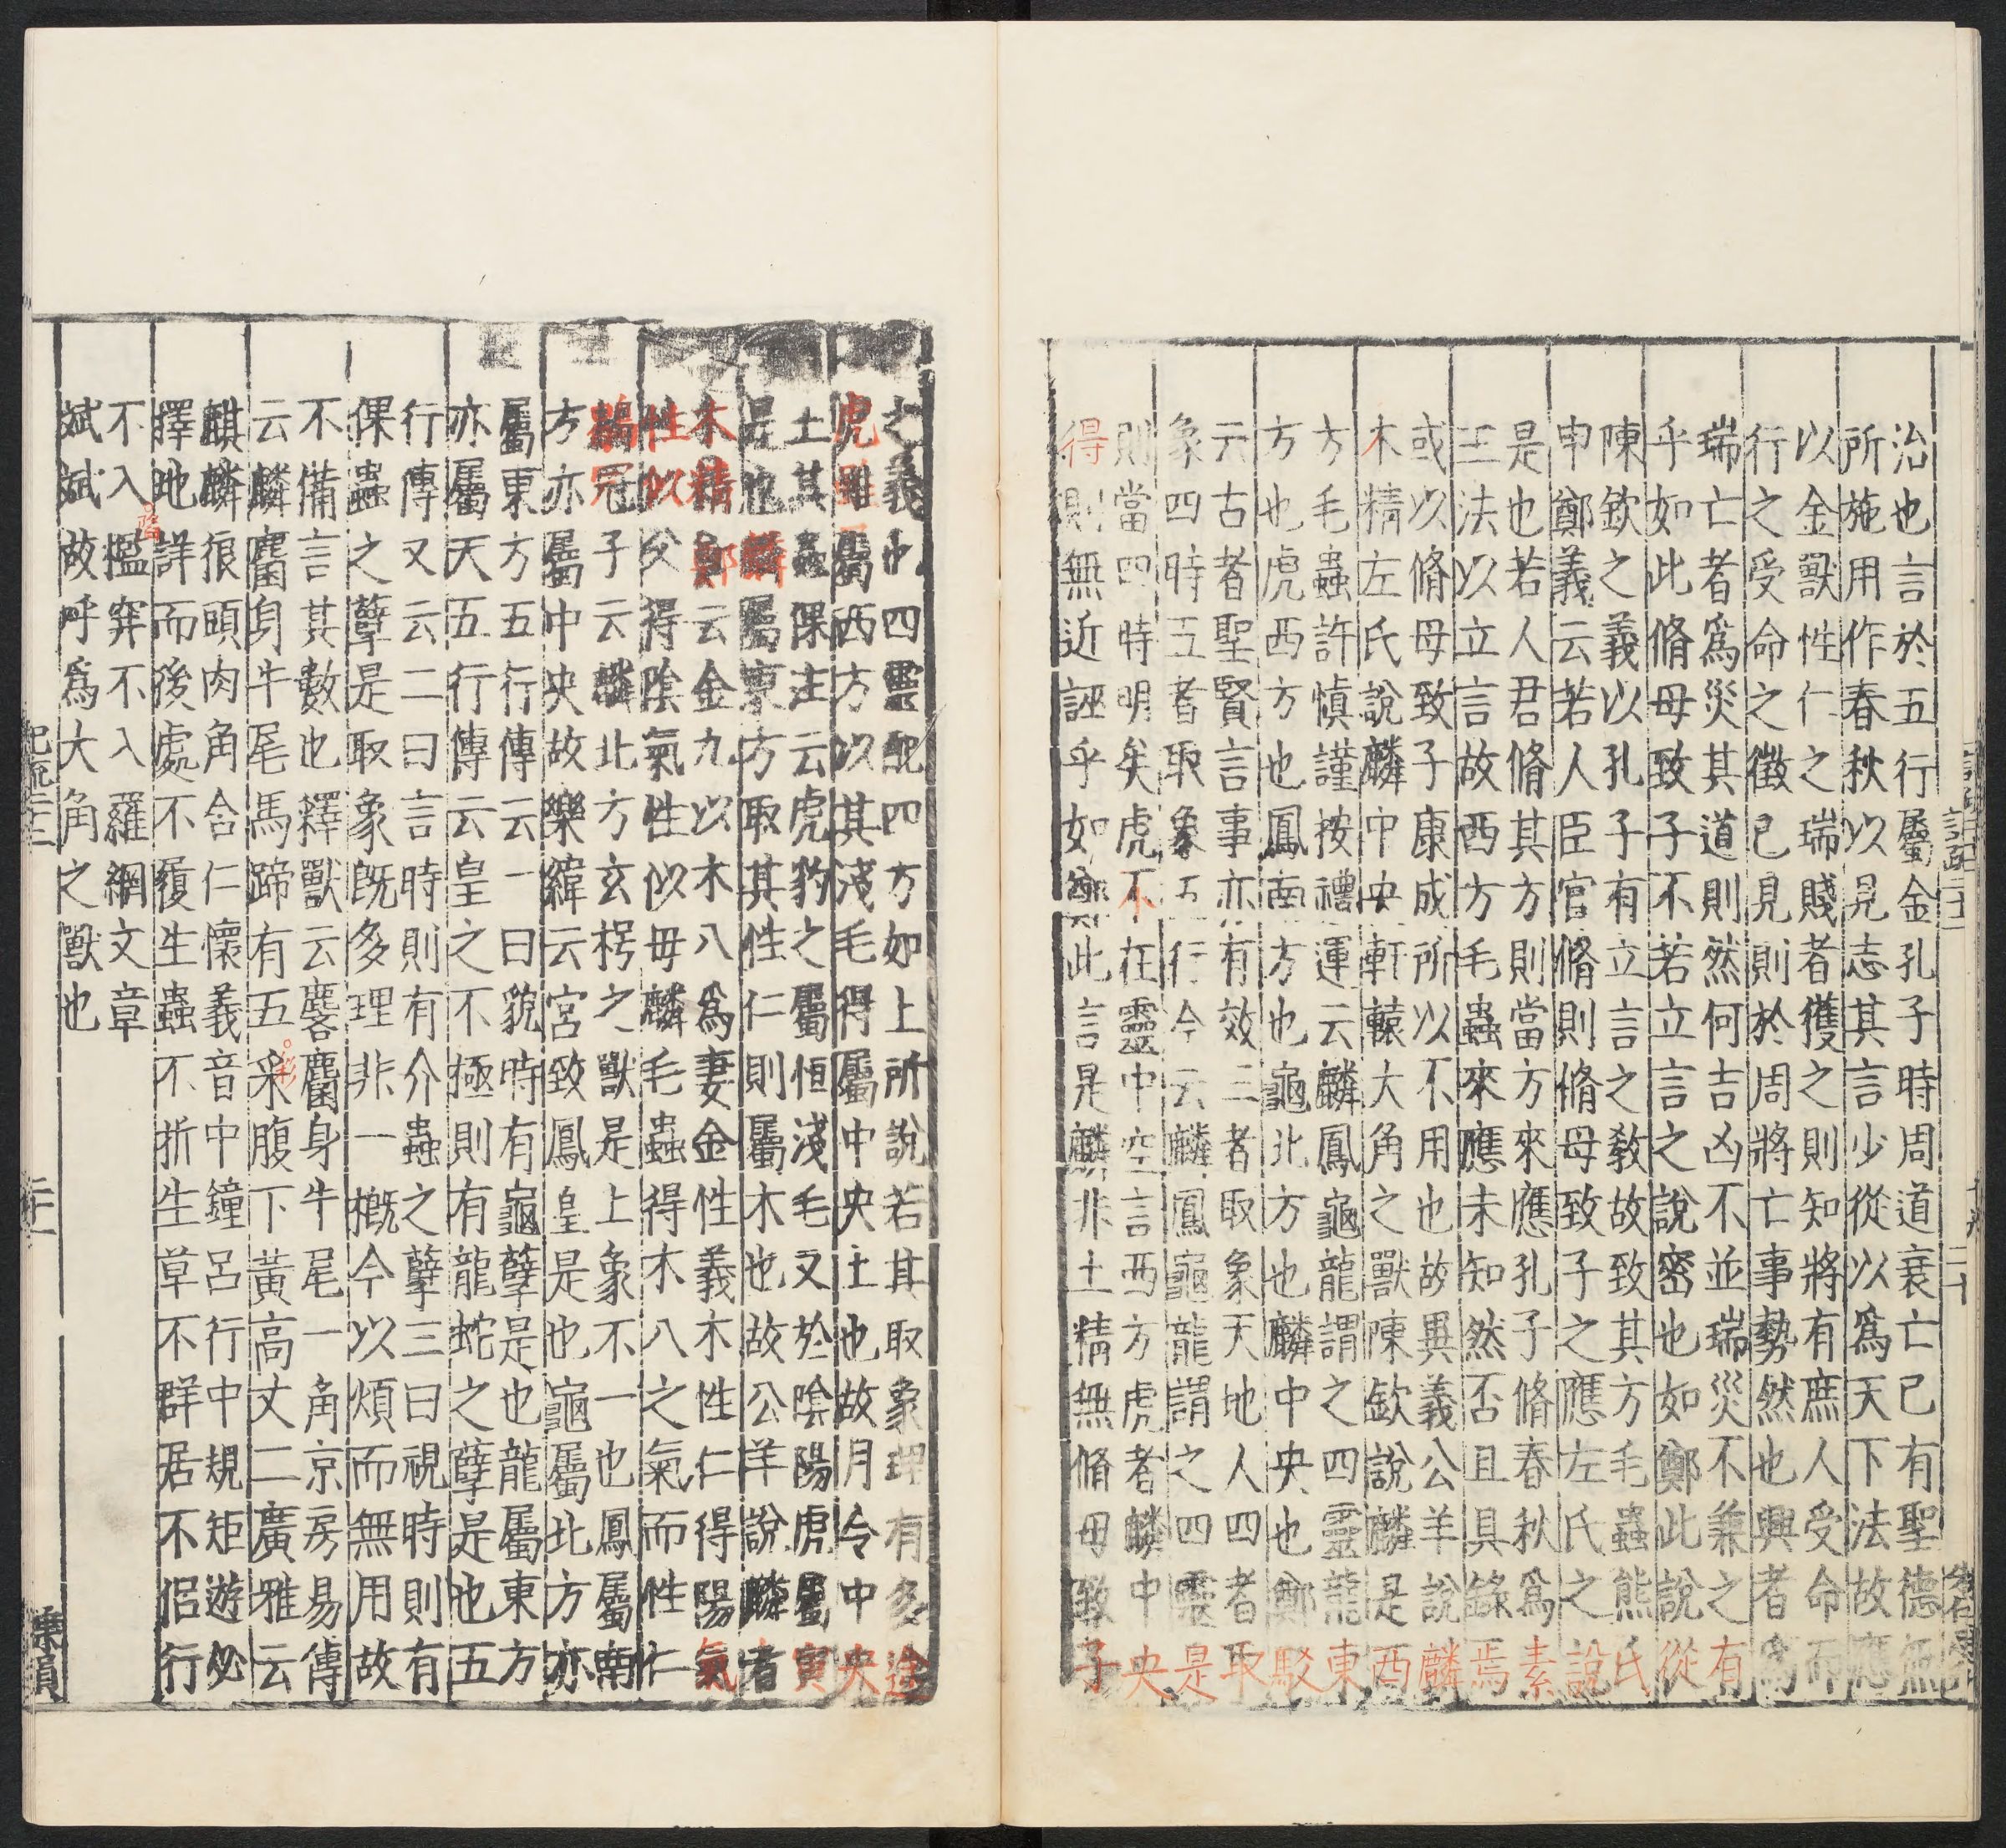 治也言於五行屬金孔子時周道衰亡已有聖德無
所施用作春秋以見志其言少從以爲天下法故應
以金獸性仁之瑞賤者獲之則知將有庶人受命而
行之受命之徵已見則於周將亡事勢然也興者爲
瑞亡者爲災其道則然何吉凶不並瑞災不兼之有
乎如此脩母致子不若立言之說密也如鄭此說從
陳欽之義以孔子有立言之教故致其方毛蟲熊氏
申鄭義云若人臣官脩則脩母致子之應左氏之說
是也若人君脩其方則當方來應孔子脩春秋爲素
王法以立言故西方毛蟲來應未知然否且具錄焉
或以脩母致子康成所以不用也故異義公羊說麟
木精左氏說麟中央軒轅大角之獸陳欽說麟是西
方毛蟲許慎謹按禮運云麟鳳龜龍謂之四靈龍東
方也虎西方也鳳南方也龜北方也麟中央也鄭駁
云古者聖賢言事亦有效三者取象天地人四者取
象四時五者取象五行今云麟鳳龜龍謂之四靈是
則當四時明矣虎不在靈中空言西方虎者麟中央
得則無近誣乎如鄭此言是麟非土精無脩母致子
之義也四靈配四方如上所說若其取象理有多途
虎雖屬西方以其淺毛得屬中央土也故月令中央
土其蟲倮注云虎豹之屬恒淺毛又於陰陽虎屬寅
是也麟屬東方取其性仁則屬木也故公羊說麟者
木精鄭云金九以木八爲妻金性義木性仁得陽氣
性似父得陰氣性似母麟毛蟲得木八之氣而性仁
鶡冠子云麟北方玄枵之獸是上象不一也鳳屬南
方亦屬中央故樂緯云宮致鳳皇是也龜屬北方亦
屬東方五行傳云一曰貌時有龜孽是也龍屬東方
亦屬天五行傳云皇之不極則有龍蛇之孽是也五
行傳又云二曰言時則有介蟲之孽三曰視時則有
倮蟲之孽是取象既多理非一槪今以煩而無用故
不備言其數也釋獸云麐麕身牛尾一角京房易傳
云麟麕身牛尾馬蹄有五采腹下黃高丈二廣雅云
麒麟狼頭肉角含仁懷義音中鐘呂行中規矩遊必
擇地詳而後處不履生蟲不折生草不群居不侶行
不入檻穽不入羅網文章
斌斌故呼爲大角之獸也